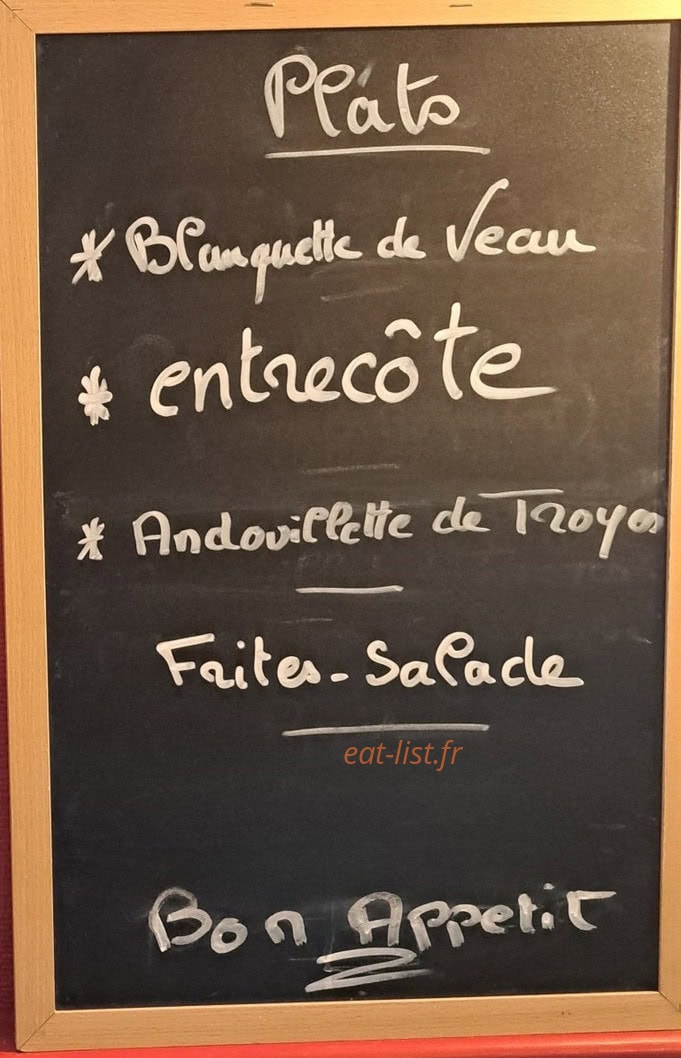 Plats
* Blanquette de Veau
* entrecôte
* Andouillette de Troyes
Frites - Salade
eat-list.fr
Bon Appetit